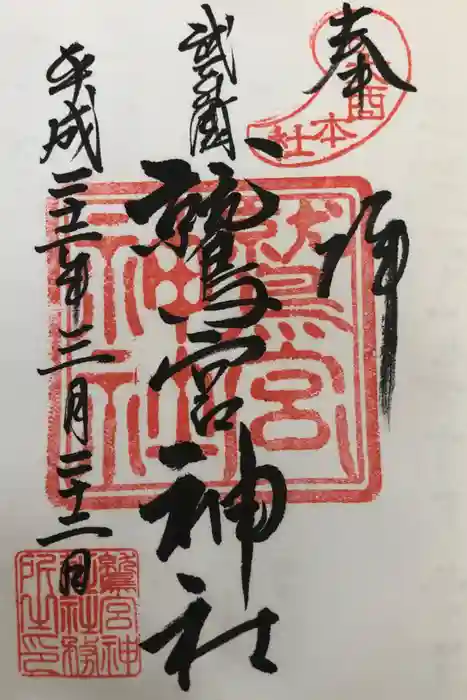 奉拝
酉
本
社
武蔵
鷲宮神社
平成二十二年三月二十二日
鷲宮
神社
鷲宮神
社社務
所之印